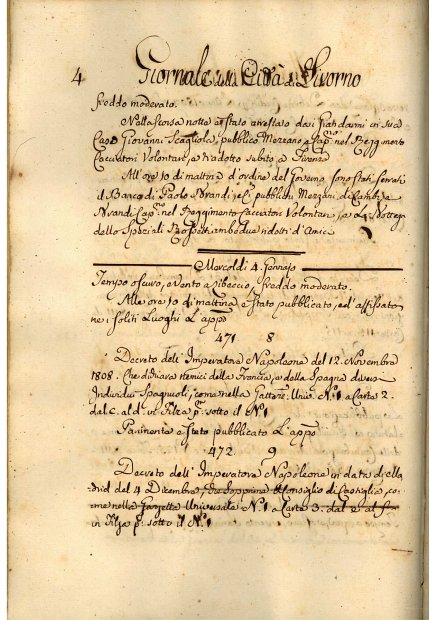 4 Giornale della Città di Livorno
freddo moderato.
Nella scorsa notte è stato arrestato dai Giandarmi in sua
Casa Giovanni Scagliola, pubblico Mezzano, e Cap.no nel Reggimento
Cacciatori Volontari, e tradotto subito, a Firenze
All'ore 10 di mattina d'ordine del Governo sono stati serrati
il Banco di Paolo pubblici Mezzani di Cambi, e
Cap.no nel Reggimento Cacciatori Volontari, e La Bottega
dello Speziali ambedue ridotti d'Amici
Mercoldì 4. Gennajo
Tempo oscuro, e Vento a Libeccio, freddo moderato.
Alle ore 10 di mattina è stato pubblicato, ed affissato
ne i soliti Luoghi L'appo
471 8
Decreto dell'Imperatore Napoleone del 12. Novembre
1808. Che dichiara nemici della Francia, e della Spagna diversi
Individui Spagnuoli, come nella Univ. N.º 1 a Carta 2.
dal c. al d. in Filza p. sotto il Nº 1
Parimente è stato pubblicato L'appo
472 9
Decreto dell'Imperatore Napoleone in data di Ma
drid del 4 Dicembre, che sopprime il Consiglio di Castiglia, co
me nella Gazzetta Universale Nº 1 a Carta 3. dal e al f
in Filza p. sotto il Nº 1